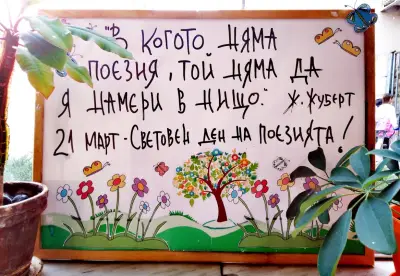 "В КОГОТО НЯМА
ПОЕЗИЯ, ТОЙ НЯМА ДА
Я НАМЕРИ В НИЩО." Ж. ЖУБЕРТ
21 МАРТ - СВЕТОВЕН ДЕН НА ПОЕЗИЯТА!